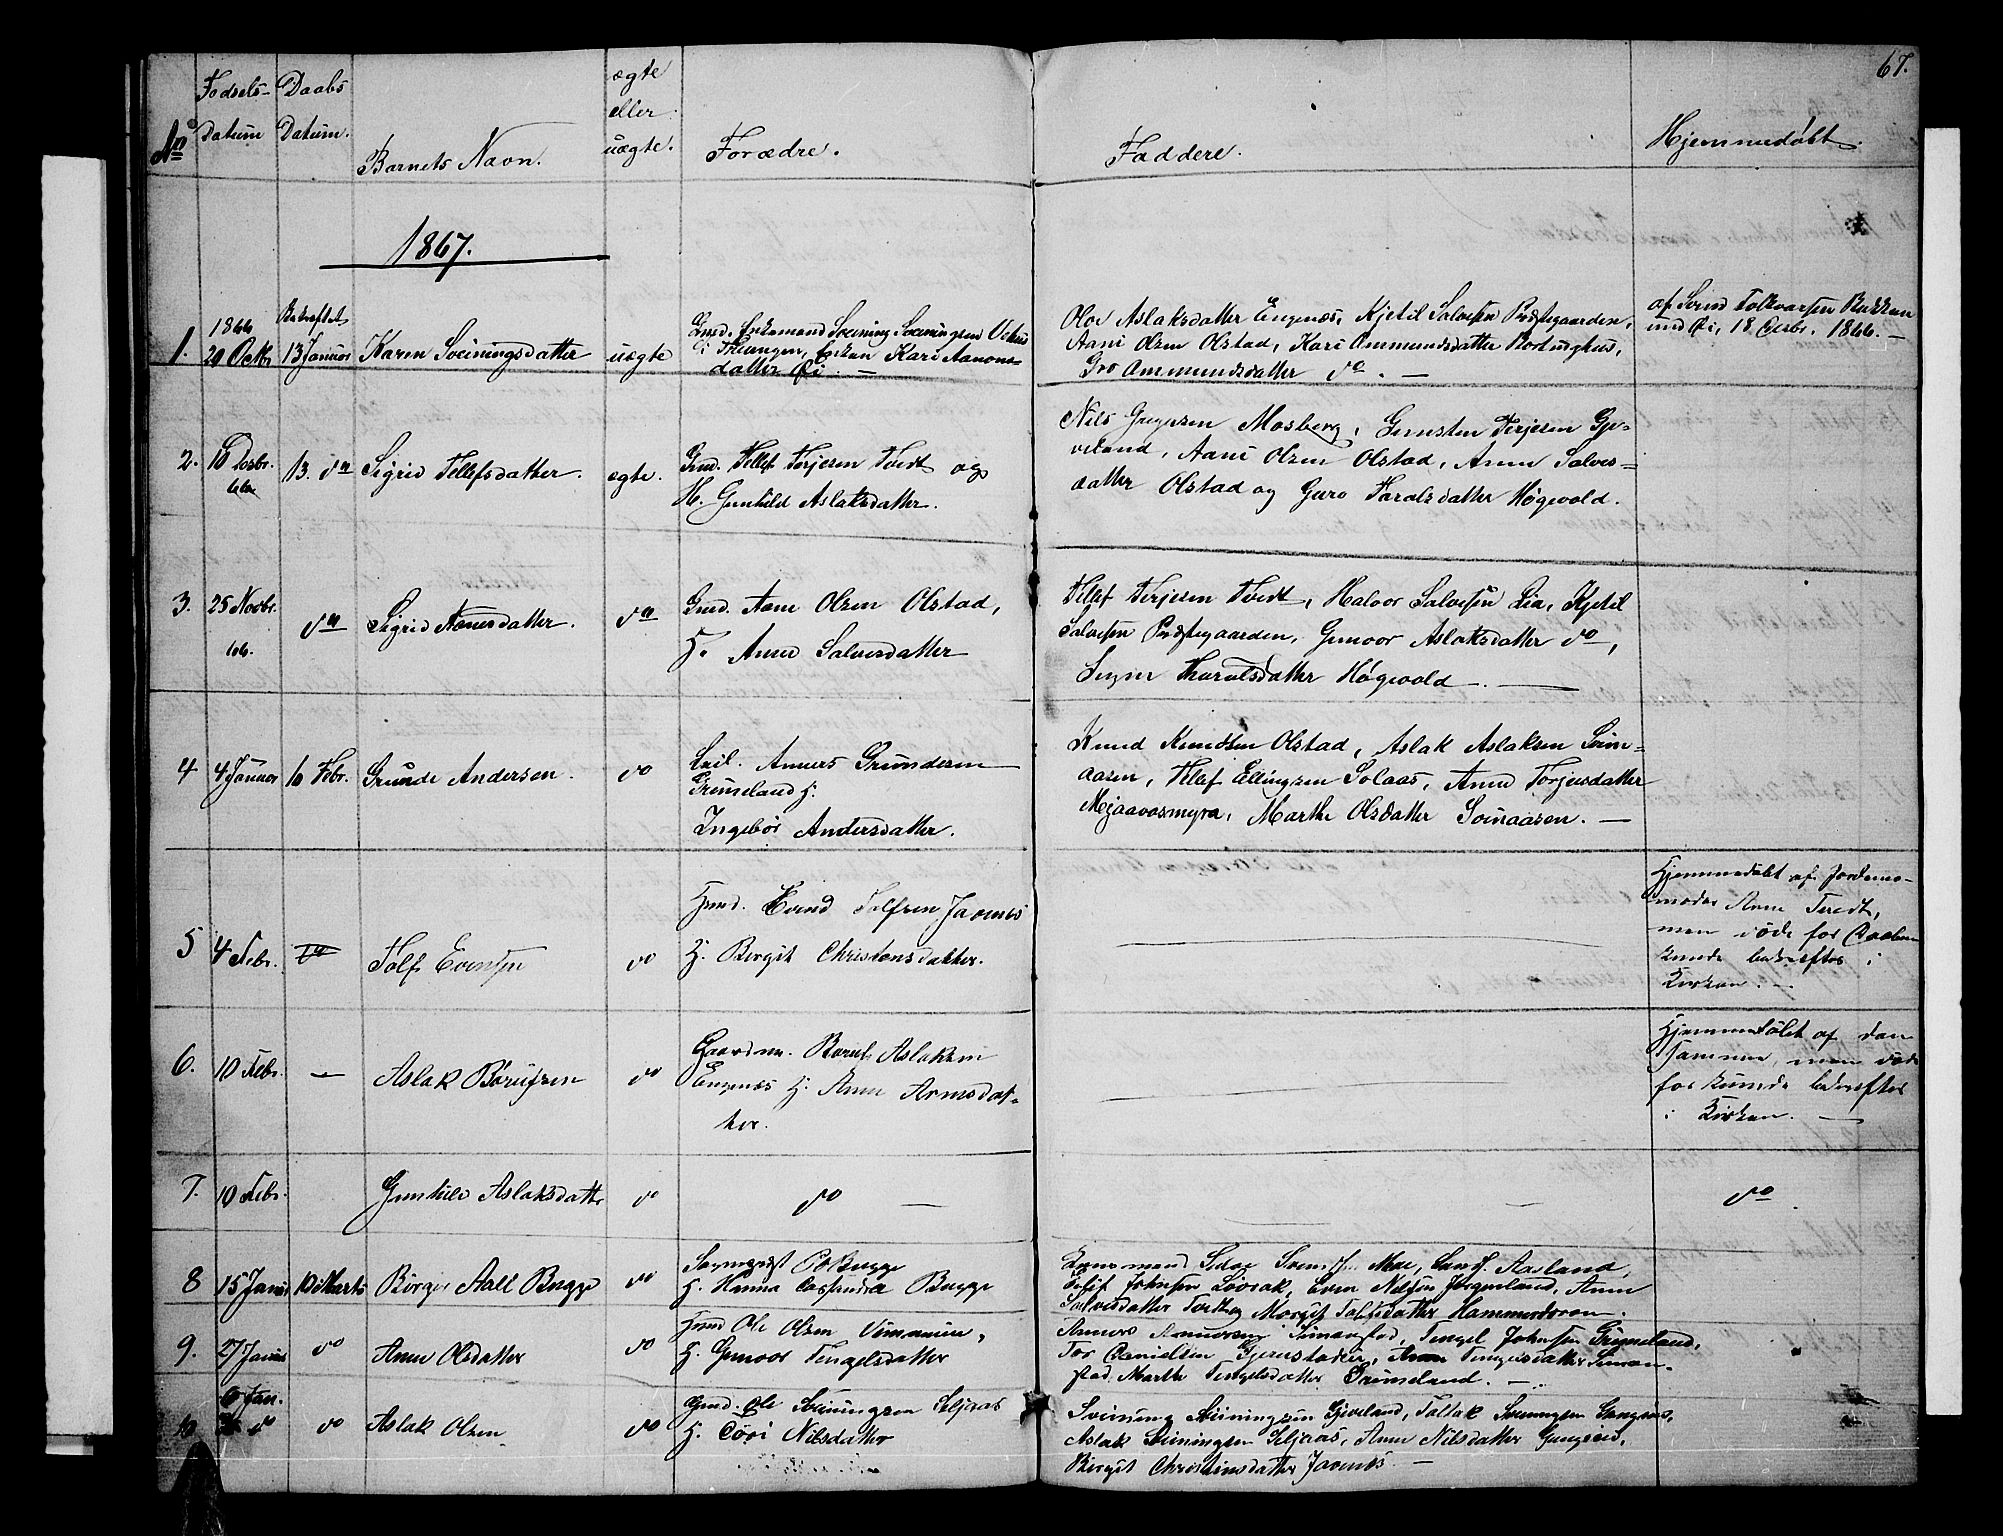 67.
No
Fødsels-
Datum
Daabs
Datum.
Barnets Navn.
ægte
eller
uægte.
Forældre.
Faddere.
Hjemmedøbt.
1867.
1.
1866
20 Octb
Bekræftet
13 Januar
Karen Sveiningsdatter
uægte
Gmd. Enkemand Sveining Sveiningsen
i Enken Kari Aanons-
datter Øi. —
Olov Aslaksdatter Engenæs, Kjetil Salvesen Præstegaarden,
Aani Olsen Olstad, Kari Ammundsdatter
Gro Ammundsdatter do. —
af Svend Folkvarsen Bakken
ved Øi, 18 Decbr. 1866. —
2.
10 Decbr.
66
13. do
Sigrid Tellefsdatter.
ægte.
Gmd. Tellef Terjesen Tvedt og
H. Gunhild Aslaksdatter.
Nils Gregersen Mosberg, Gunsten Terjesen Gje-
veland, Aani Olsen Olstad, Anne Salves-
datter Olstad og Guro Haralsdatter Høgevold.
3.
25 Novbr.
66.
do
Sigrid Aanesdatter.
do
Gmd. Aane Olsen Olstad,
H. Anne Salvesdatter
Tellef Terjesen Tvedt, Halvor Salvesen Lia, Kjetil
Salvesen Præstegaarden, Gunvor Aslaksdatter do,
Signe Haralsdatter Høgevold. —
4
4 Januar
10 Febr.
Grunde Andersen.
do
Leil. Anders Grundesen
Grimeland H.
Ingebor Andersdatter.
Knud Knudsen Olstad, Aslak Aslaksen Svin-
aasen, Tellef Ellingsen Solaas, Anne Torjusdatter
Mjaavasmyra, Marthe Olsdatter Svinaasen. —
5
4 Febr.
do
Tolf Evensen
do
Gmd. Evend Tolfsen Javnes
H. Birgit Christensdatter.
Hjemmedøbt af Jordemo-
moder Anne Tvedt,
men døde før Daaben
kunde bekræftes i
Kirken. —
6.
10 Febr.
—
Aslak Børufsen
do
Gaardm. Børuf Aslaksen
Engenæs H. Anne Arnesdat-
ter.
Hjemmedøbt af den
samme, men døde
før kunde bekræftes
i Kirken. —
7.
10 Febr.
Gunhild Aslaksdatter
do
do —
—
do
8
15 Januar
10 Marts
Birger Aall Bugge
do
Sogneprest Bugge
H. Hanna Cassandra Bugge
Lensmand Svends. Moe, Aasland,
Johnsen Løvrak, Even Nilsen Jørgenland, Anne
Salvesdatter Tvedt og Margit Hammerdoren.
9.
27 Januar
do
Anne Olsdatter
do
Gmd Ole Olsen
H. Gunvor Tengelsdatter
Anders Simonstad, Tengel Johnsen Grimeland,
Tor Danielsen Anne Tengelsdatter Simon-
stad, Marthe Tengelsdatter Grimeland. —
10
6 Jan.
do
do
Aslak Olsen
do
Gmd. Ole Sveiningsen Seljaas
H. Nilsdatter
Sveining Sveiningsen Gjeveland, Sveiningsen
Aslak Sveiningsen Seljaas, Anne Nilsdatter
Birgit Christensdatter Javnes —